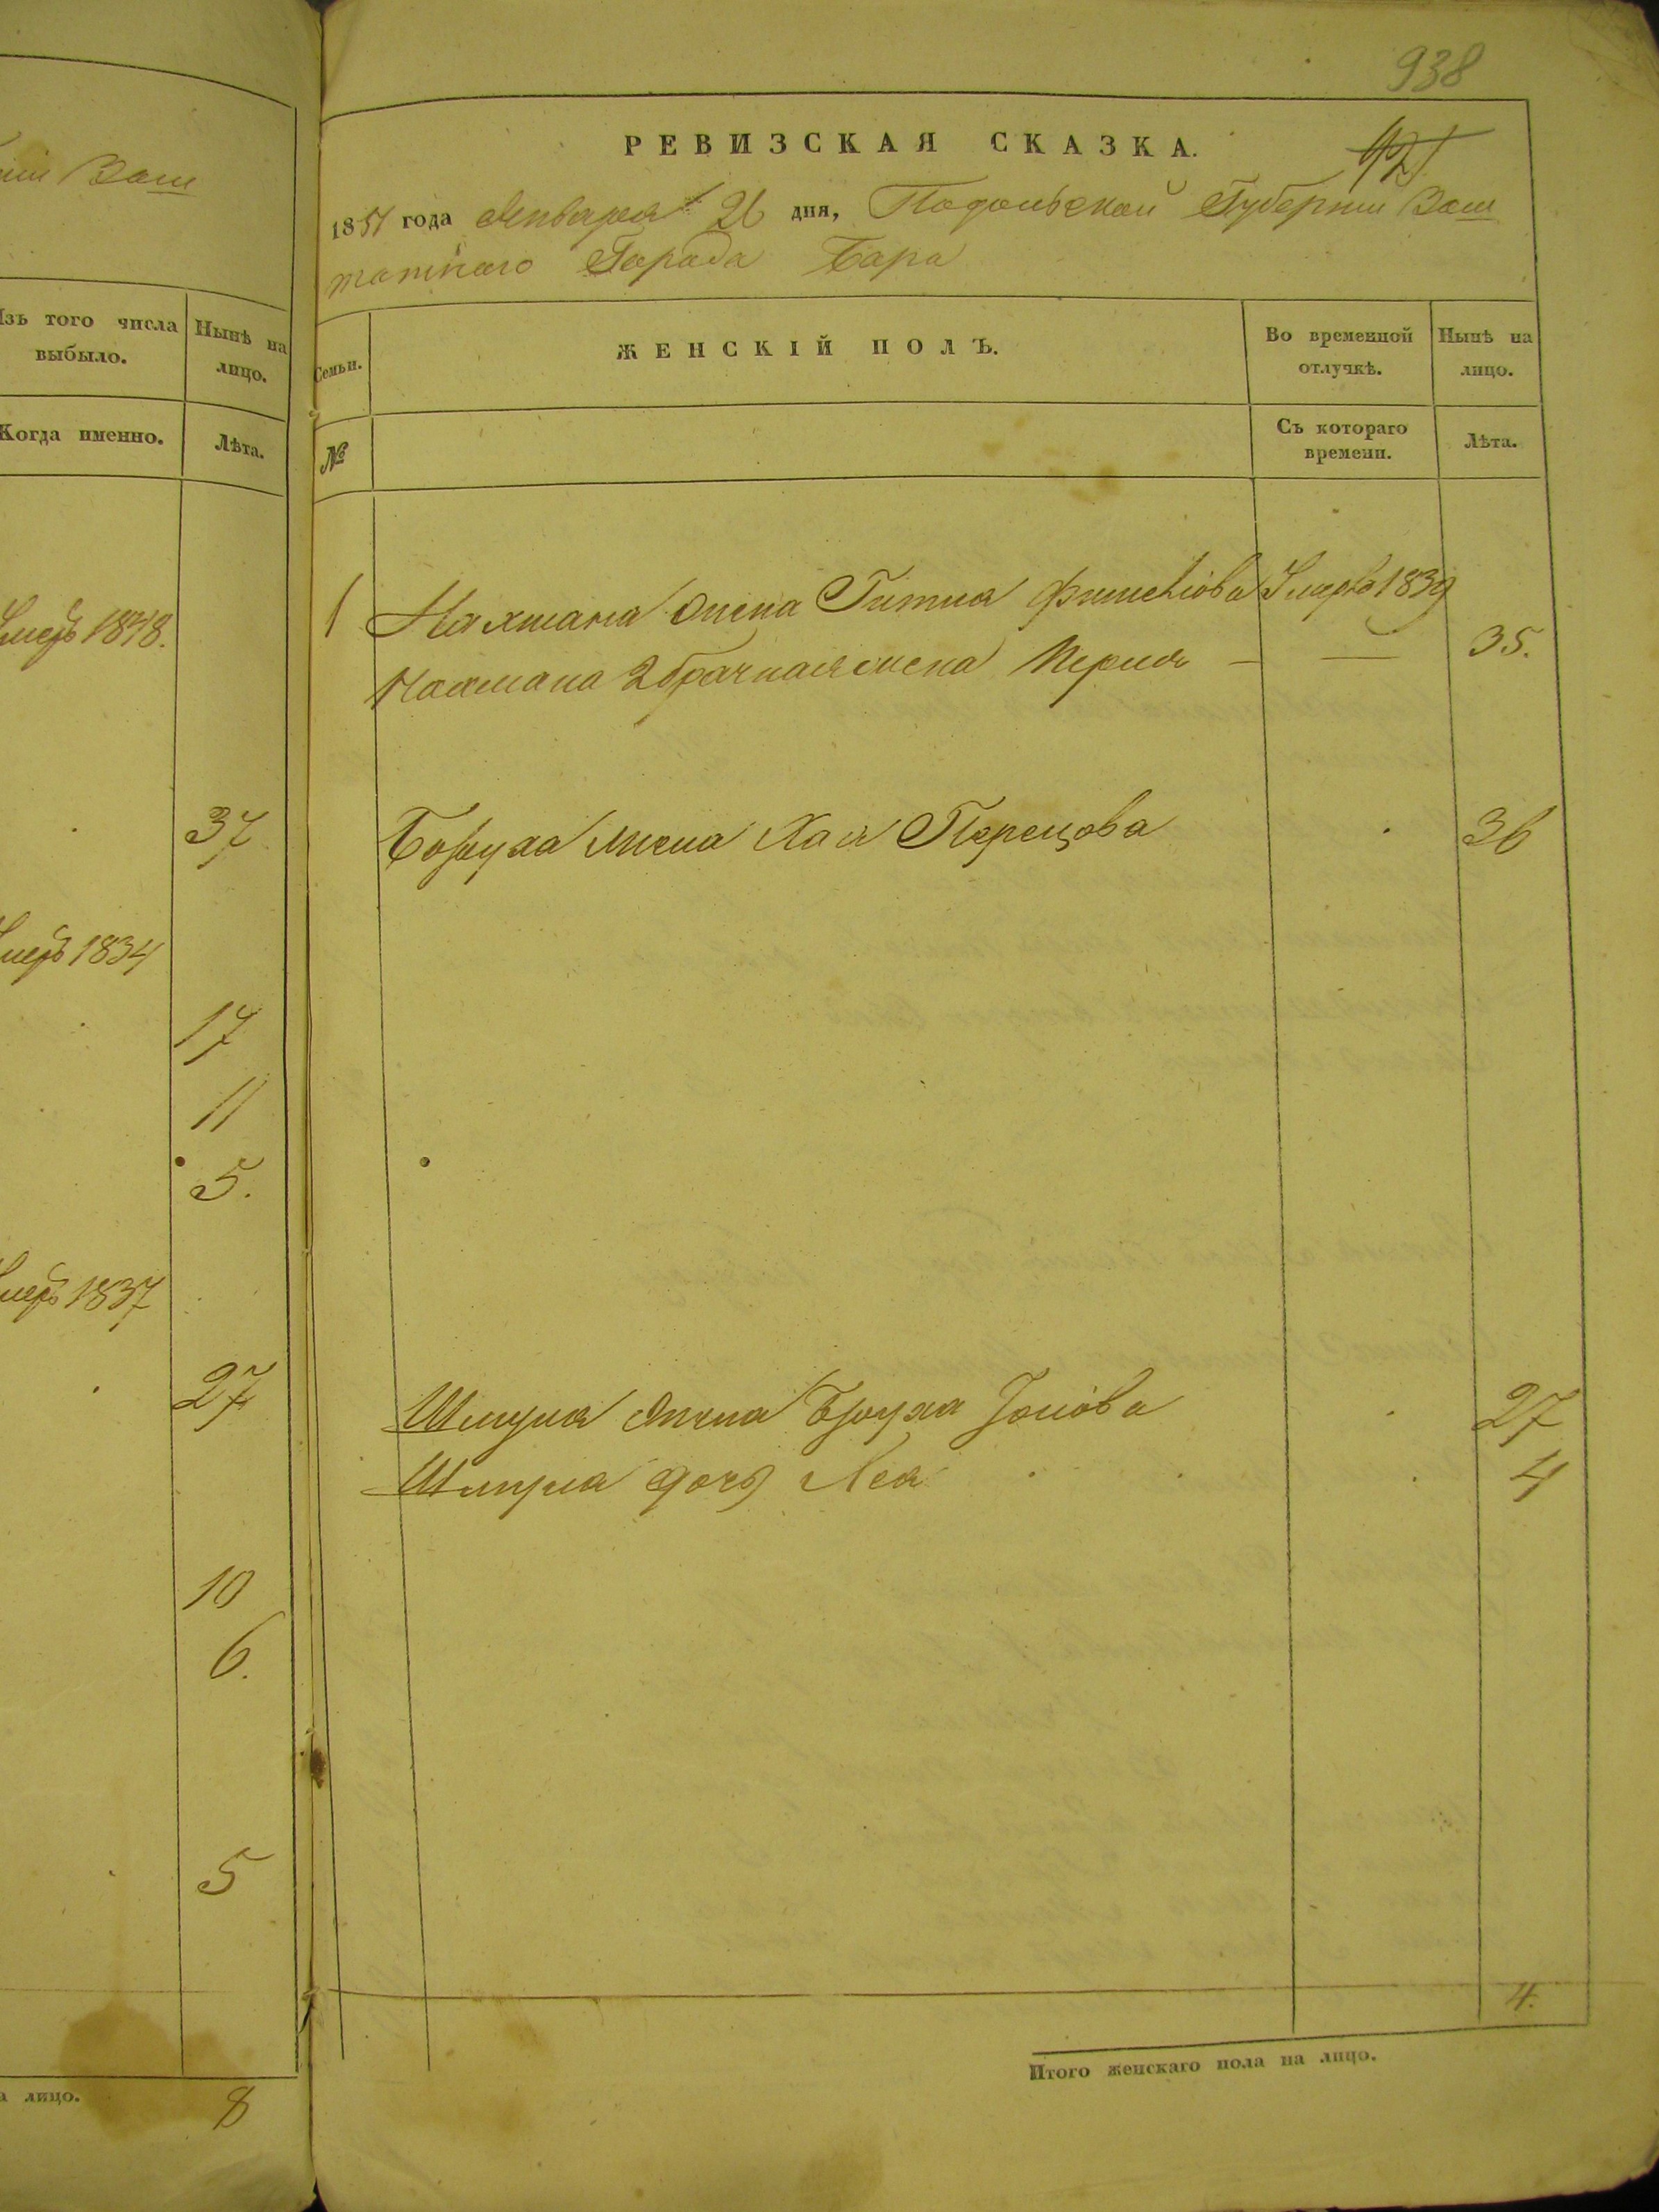 938
РЕВИЗСКАЯ СКАЗКА.
1851 года Января 26 дня, Подольской Губернии Заш
татного Города Бара
Изъ того числа выбыло.
Нынѣ на лицо.
Когда именно.
Лѣта.
Семьи.
ЖЕНСКІЙ ПОЛЪ.
Во временной отлучкѣ.
Нынѣ на лицо.
№
Съ котораго времени.
Лѣта.
1848.
37
1834
17
11
5.
1837
27
10
6.
5
а лицо. 8
1 Нахмана жена Гитля 1839
Нахмана 2 брачная жена Перля — — 35.
Боруха жена Хая Перецова 36
Шмуля жена Бруха 27
Шмуля дочь Лея 4
4.
Итого женскаго пола на лицо.